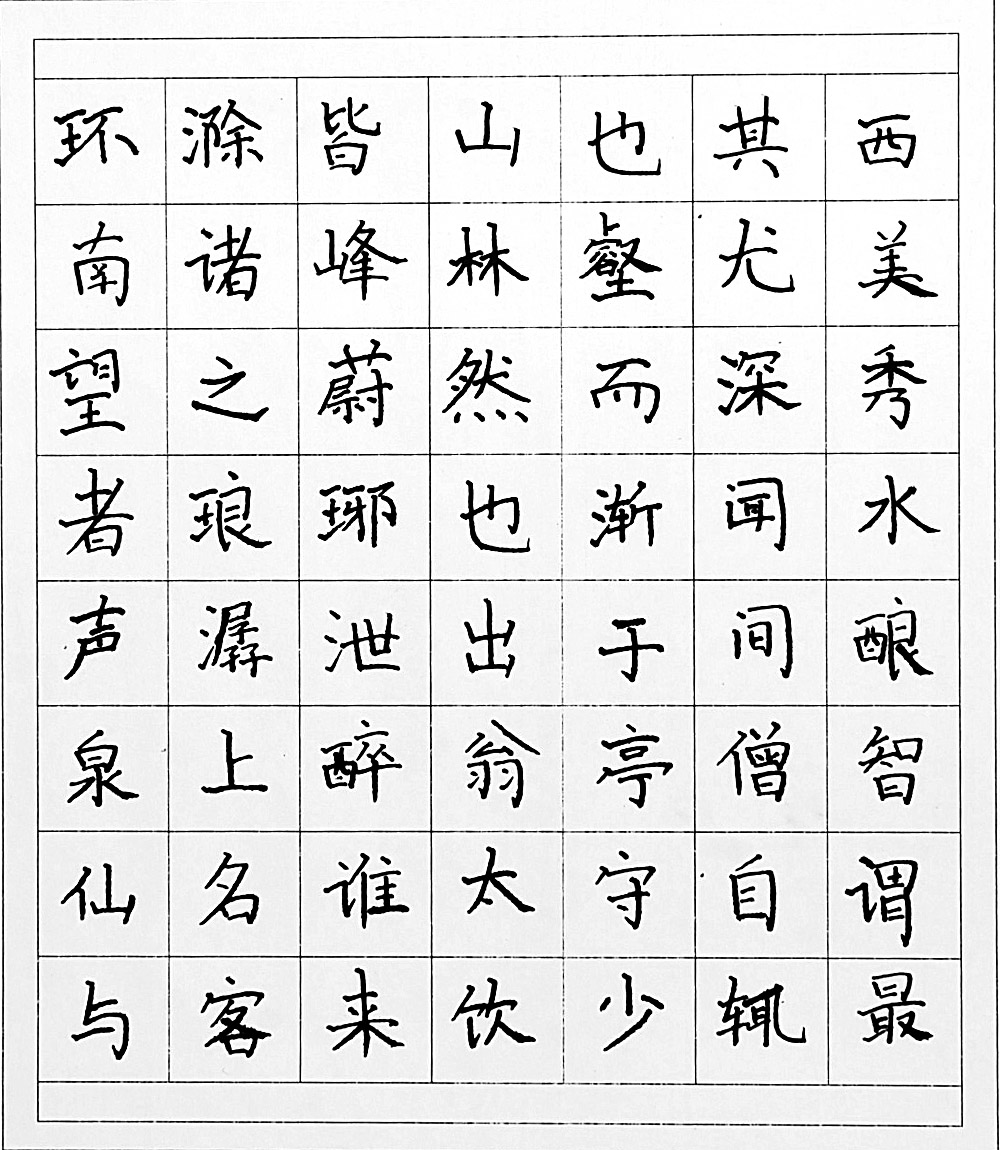 环滁皆山也其西
南诸峰林壑尤美
望之蔚然而深秀
者琅琊也渐闻水
声潺泄出于间酿
泉上醉翁亭僧智
仙名谁太守自谓
与客来饮少辄最